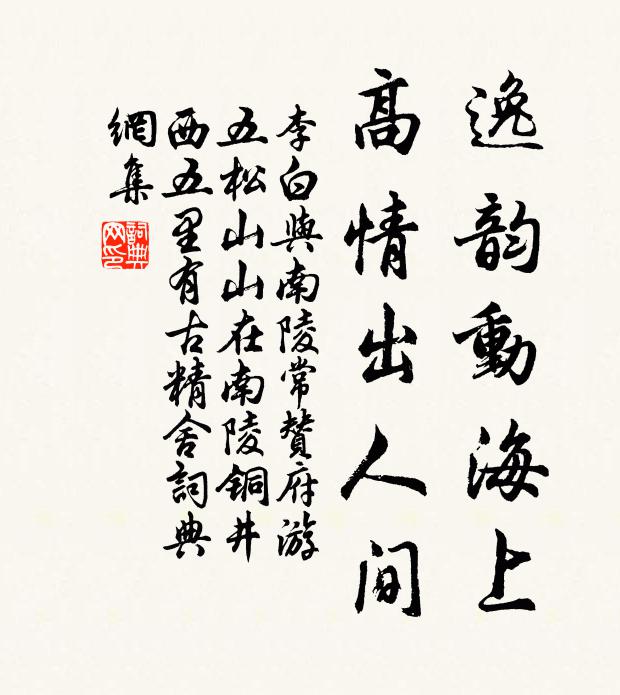 逸韵動海上
高情出人间
李白與南陵常贊府游
五松山山在南陵銅井
西五里有古精舍詞典
網集
詞典
网印